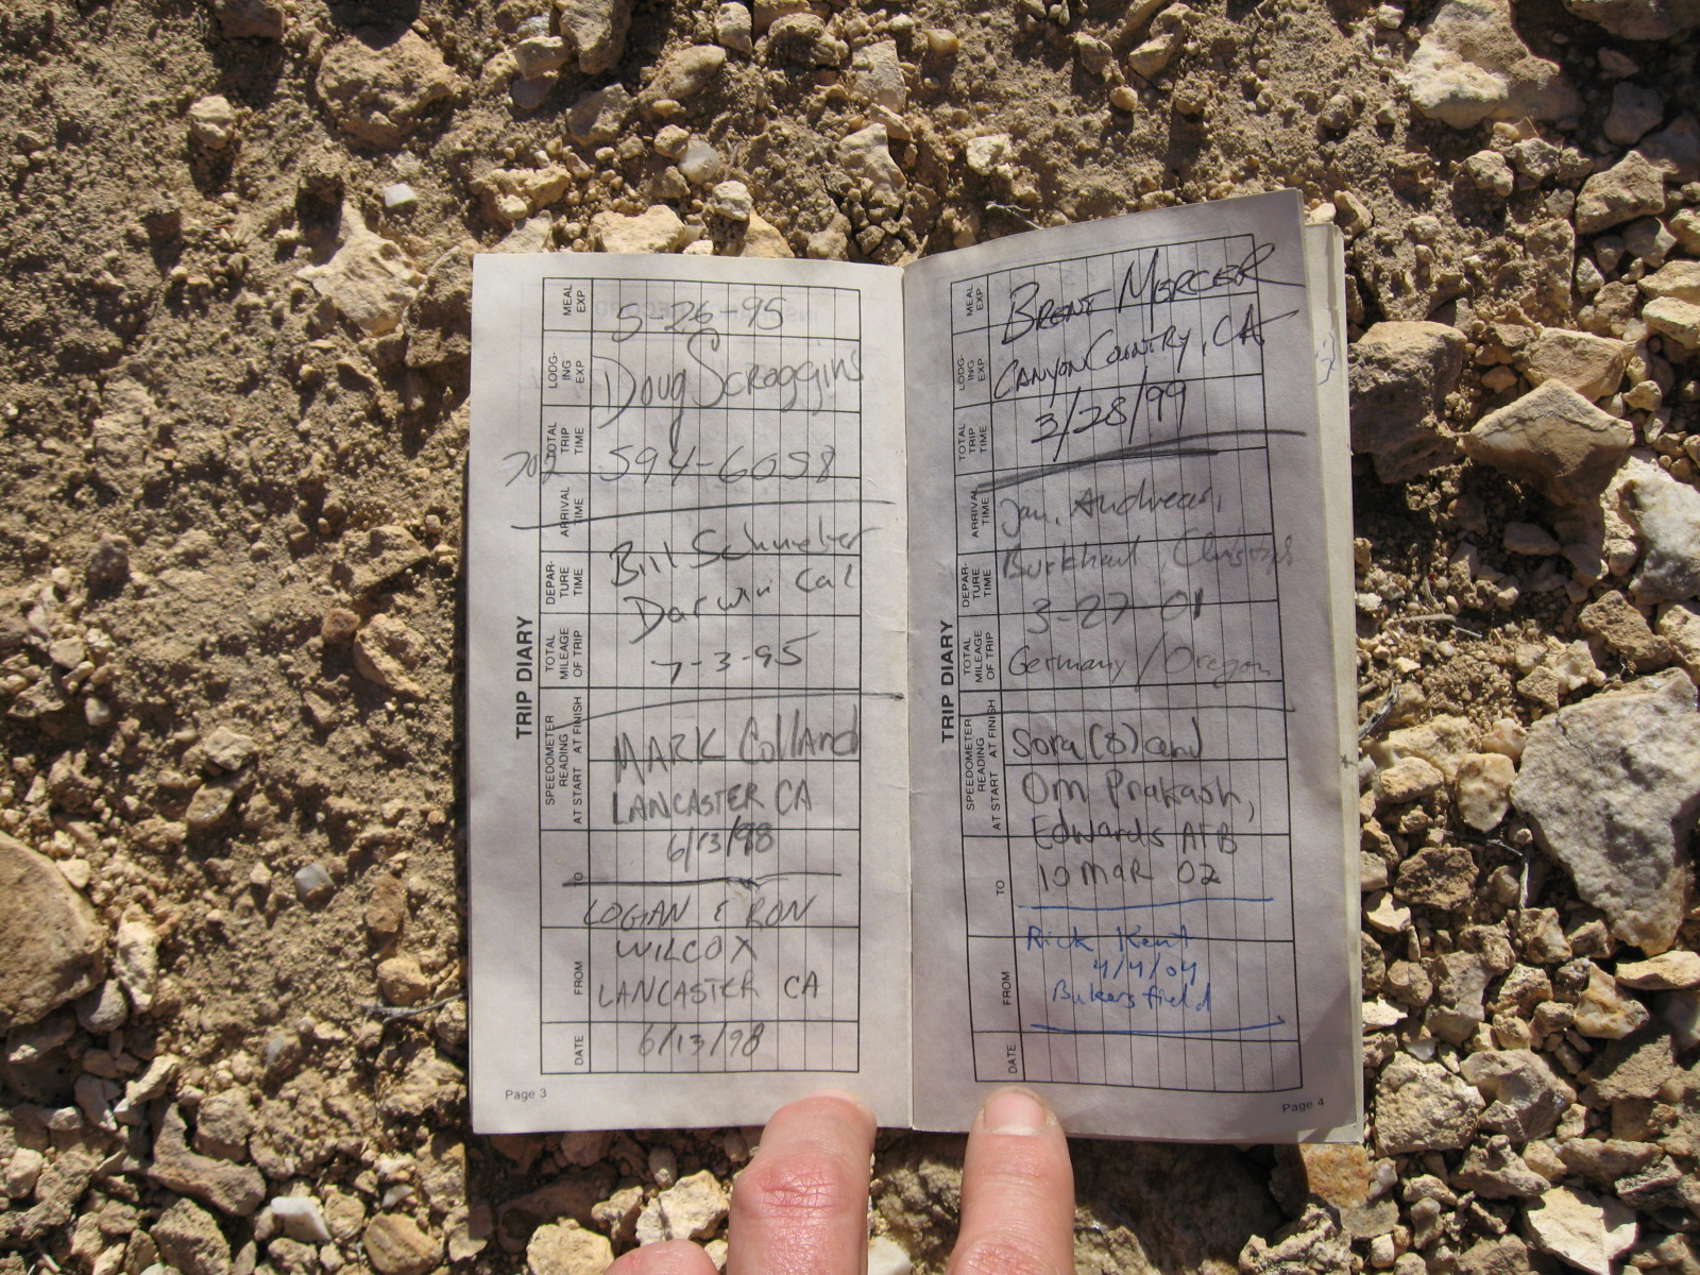 5-26-95
Doug Scroggins
702 594-6058
Bill
Darwin Cal
7-3-95
MARK Colland
LANCASTER CA
6/13/98
LOGAN & RON
WILCOX
LANCASTER CA
6/13/98
TRIP DIARY
MEAL EXP.
LODG-ING EXP
TOTAL TRIP TIME
ARRIVAL TIME
DEPAR-TURE TIME
TOTAL MILEAGE OF TRIP
SPEEDOMETER READING
AT START AT FINISH
TO
FROM
DATE
Page 3
BRENT MERCER
CANYON COUNTRY, CA
3/28/99
Jan, Andreas,
Burkhard,
3-27-01
Germany/Oregon
Sora (8) and
Om Prakash,
Edwards AFB
10 MAR 02
Rick Kent
4/4/04
Bakersfield
TRIP DIARY
MEAL EXP.
LODG-ING EXP
TOTAL TRIP TIME
ARRIVAL TIME
DEPAR-TURE TIME
TOTAL MILEAGE OF TRIP
SPEEDOMETER READING
AT START AT FINISH
TO
FROM
DATE
Page 4